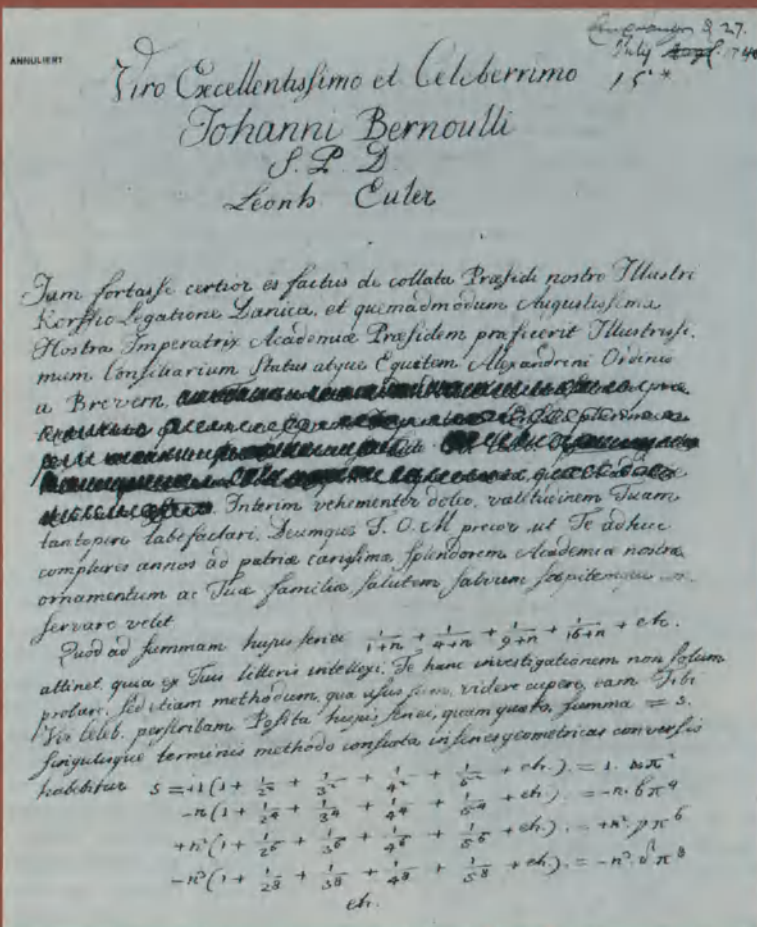 ANNULIERT
27.
July 174
15
Viro Excellentissimo et Celeberrimo
Johanni Bernoulli
S. P. D.
Leonh. Euler
Jam fortasse certior es factus de collata Præsidi nostro Illustri
Korffio Legatione Danica, et quemadmodum Augustissima
Nostra Imperatrix Academiæ Præsidem præfecerit Illustrissi-
mum Consiliarium Status atque Equitem Alexandrini Ordinis
a Brevern.
Interim vehementer doleo, valetudinem Tuam
tantopere labefactari, Deumque T. O. M precor, ut Te adhuc
complures annos ad patriæ carissimæ splendorem Academiæ nostræ
ornamentum ac Tuæ familiæ salutem salvum sospitemque
servare velit.
Quod ad summam hujus seriei 1/(1+n) + 1/(4+n) + 1/(9+n) + 1/(16+n) + etc.
attinet, quia ex Tuis litteris intellexi, Te hanc investigationem non solum
probare, sed etiam methodum, qua usus sum, videre cupere, eam Tibi
Vir celeb. perscribam. Posita hujus seriei, quam quæro, summa = s.
singulisque terminis methodo consueta in series geometricas conversis
habebitur s = +1(1 + 1/2² + 1/3² + 1/4² + 1/5² + etc.) = 1. απ²
-n(1 + 1/2⁴ + 1/3⁴ + 1/4⁴ + 1/5⁴ + etc.) = -n. βπ⁴
+n²(1 + 1/2⁶ + 1/3⁶ + 1/4⁶ + 1/5⁶ + etc.) = +n². γπ⁶
-n³(1 + 1/2⁸ + 1/3⁸ + 1/4⁸ + 1/5⁸ + etc.) = -n³. δπ⁸
etc.